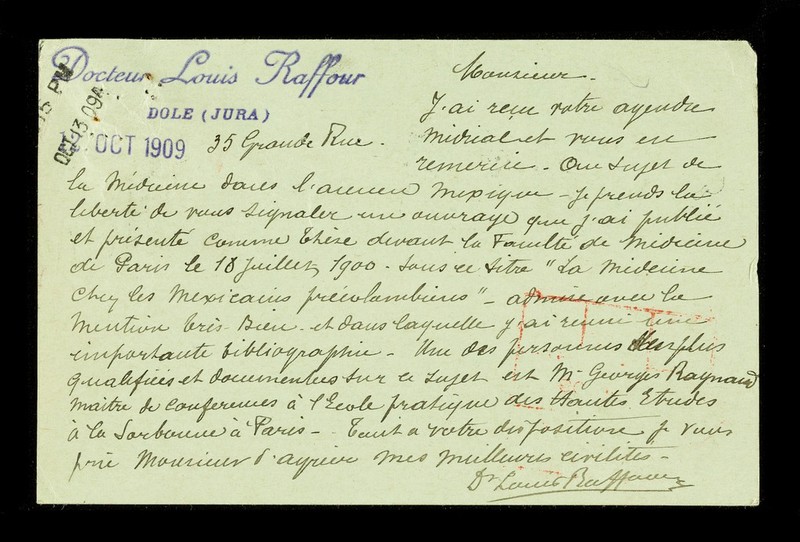 Docteur Louis Raffour
DOLE (JURA)
OCT 1909
OCT 13 09A
15 PM
35 Grande Rue.
Monsieur.
J'ai reçu votre agenda
médical et vous en
remercie. Au sujet de
la Médecine dans l'ancien Mexique - Je prends la
liberté de vous signaler un ouvrage que j'ai publié
et présenté comme thèse devant la Faculté de Médecine
de Paris le 18 Juillet 1900 - sous ce titre "La Médecine
chez les Mexicains précolombiens" - admise avec la
Mention très Bien - et dans laquelle j'ai réuni une
importante bibliographie - Une des personnes les plus
qualifiées et documentées sur ce sujet est Mr Georges Raynaud
Maître de Conférences à l'Ecole pratique des Hautes Etudes
à la Sorbonne à Paris - Tout à votre disposition je vous
prie Monsieur d'agréer mes meilleures civilités -
Dr Louis Raffour